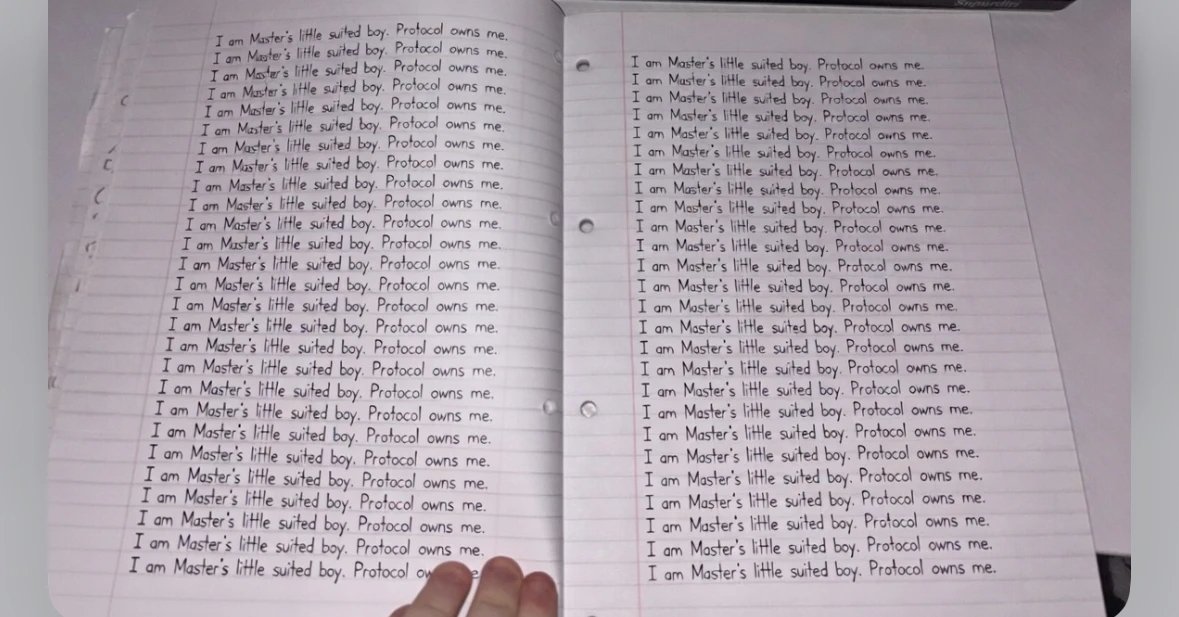 I am Master's little suited boy. Protocol owns me.
I am Master's little suited boy. Protocol owns me.
I am Master's little suited boy. Protocol owns me.
I am Master's little suited boy. Protocol owns me.
I am Master's little suited boy. Protocol owns me.
I am Master's little suited boy. Protocol owns me.
I am Master's little suited boy. Protocol owns me.
I am Master's little suited boy. Protocol owns me.
I am Master's little suited boy. Protocol owns me.
I am Master's little suited boy. Protocol owns me.
I am Master's little suited boy. Protocol owns me.
I am Master's little suited boy. Protocol owns me.
I am Master's little suited boy. Protocol owns me.
I am Master's little suited boy. Protocol owns me.
I am Master's little suited boy. Protocol owns me.
I am Master's little suited boy. Protocol owns me.
I am Master's little suited boy. Protocol owns me.
I am Master's little suited boy. Protocol owns me.
I am Master's little suited boy. Protocol owns me.
I am Master's little suited boy. Protocol owns me.
I am Master's little suited boy. Protocol owns me.
I am Master's little suited boy. Protocol owns me.
I am Master's little suited boy. Protocol owns me.
I am Master's little suited boy. Protocol owns me.
I am Master's little suited boy. Protocol owns me.
I am Master's little suited boy. Protocol owns me.
I am Master's little suited boy. Protocol
I am Master's little suited boy. Protocol owns me.
I am Master's little suited boy. Protocol owns me.
I am Master's little suited boy. Protocol owns me.
I am Master's little suited boy. Protocol owns me.
I am Master's little suited boy. Protocol owns me.
I am Master's little suited boy. Protocol owns me.
I am Master's little suited boy. Protocol owns me.
I am Master's little suited boy. Protocol owns me.
I am Master's little suited boy. Protocol owns me.
I am Master's little suited boy. Protocol owns me.
I am Master's little suited boy. Protocol owns me.
I am Master's little suited boy. Protocol owns me.
I am Master's little suited boy. Protocol owns me.
I am Master's little suited boy. Protocol owns me.
I am Master's little suited boy. Protocol owns me.
I am Master's little suited boy. Protocol owns me.
I am Master's little suited boy. Protocol owns me.
I am Master's little suited boy. Protocol owns me.
I am Master's little suited boy. Protocol owns me.
I am Master's little suited boy. Protocol owns me.
I am Master's little suited boy. Protocol owns me.
I am Master's little suited boy. Protocol owns me.
I am Master's little suited boy. Protocol owns me.
I am Master's little suited boy. Protocol owns me.
I am Master's little suited boy. Protocol owns me.
I am Master's little suited boy. Protocol owns me.